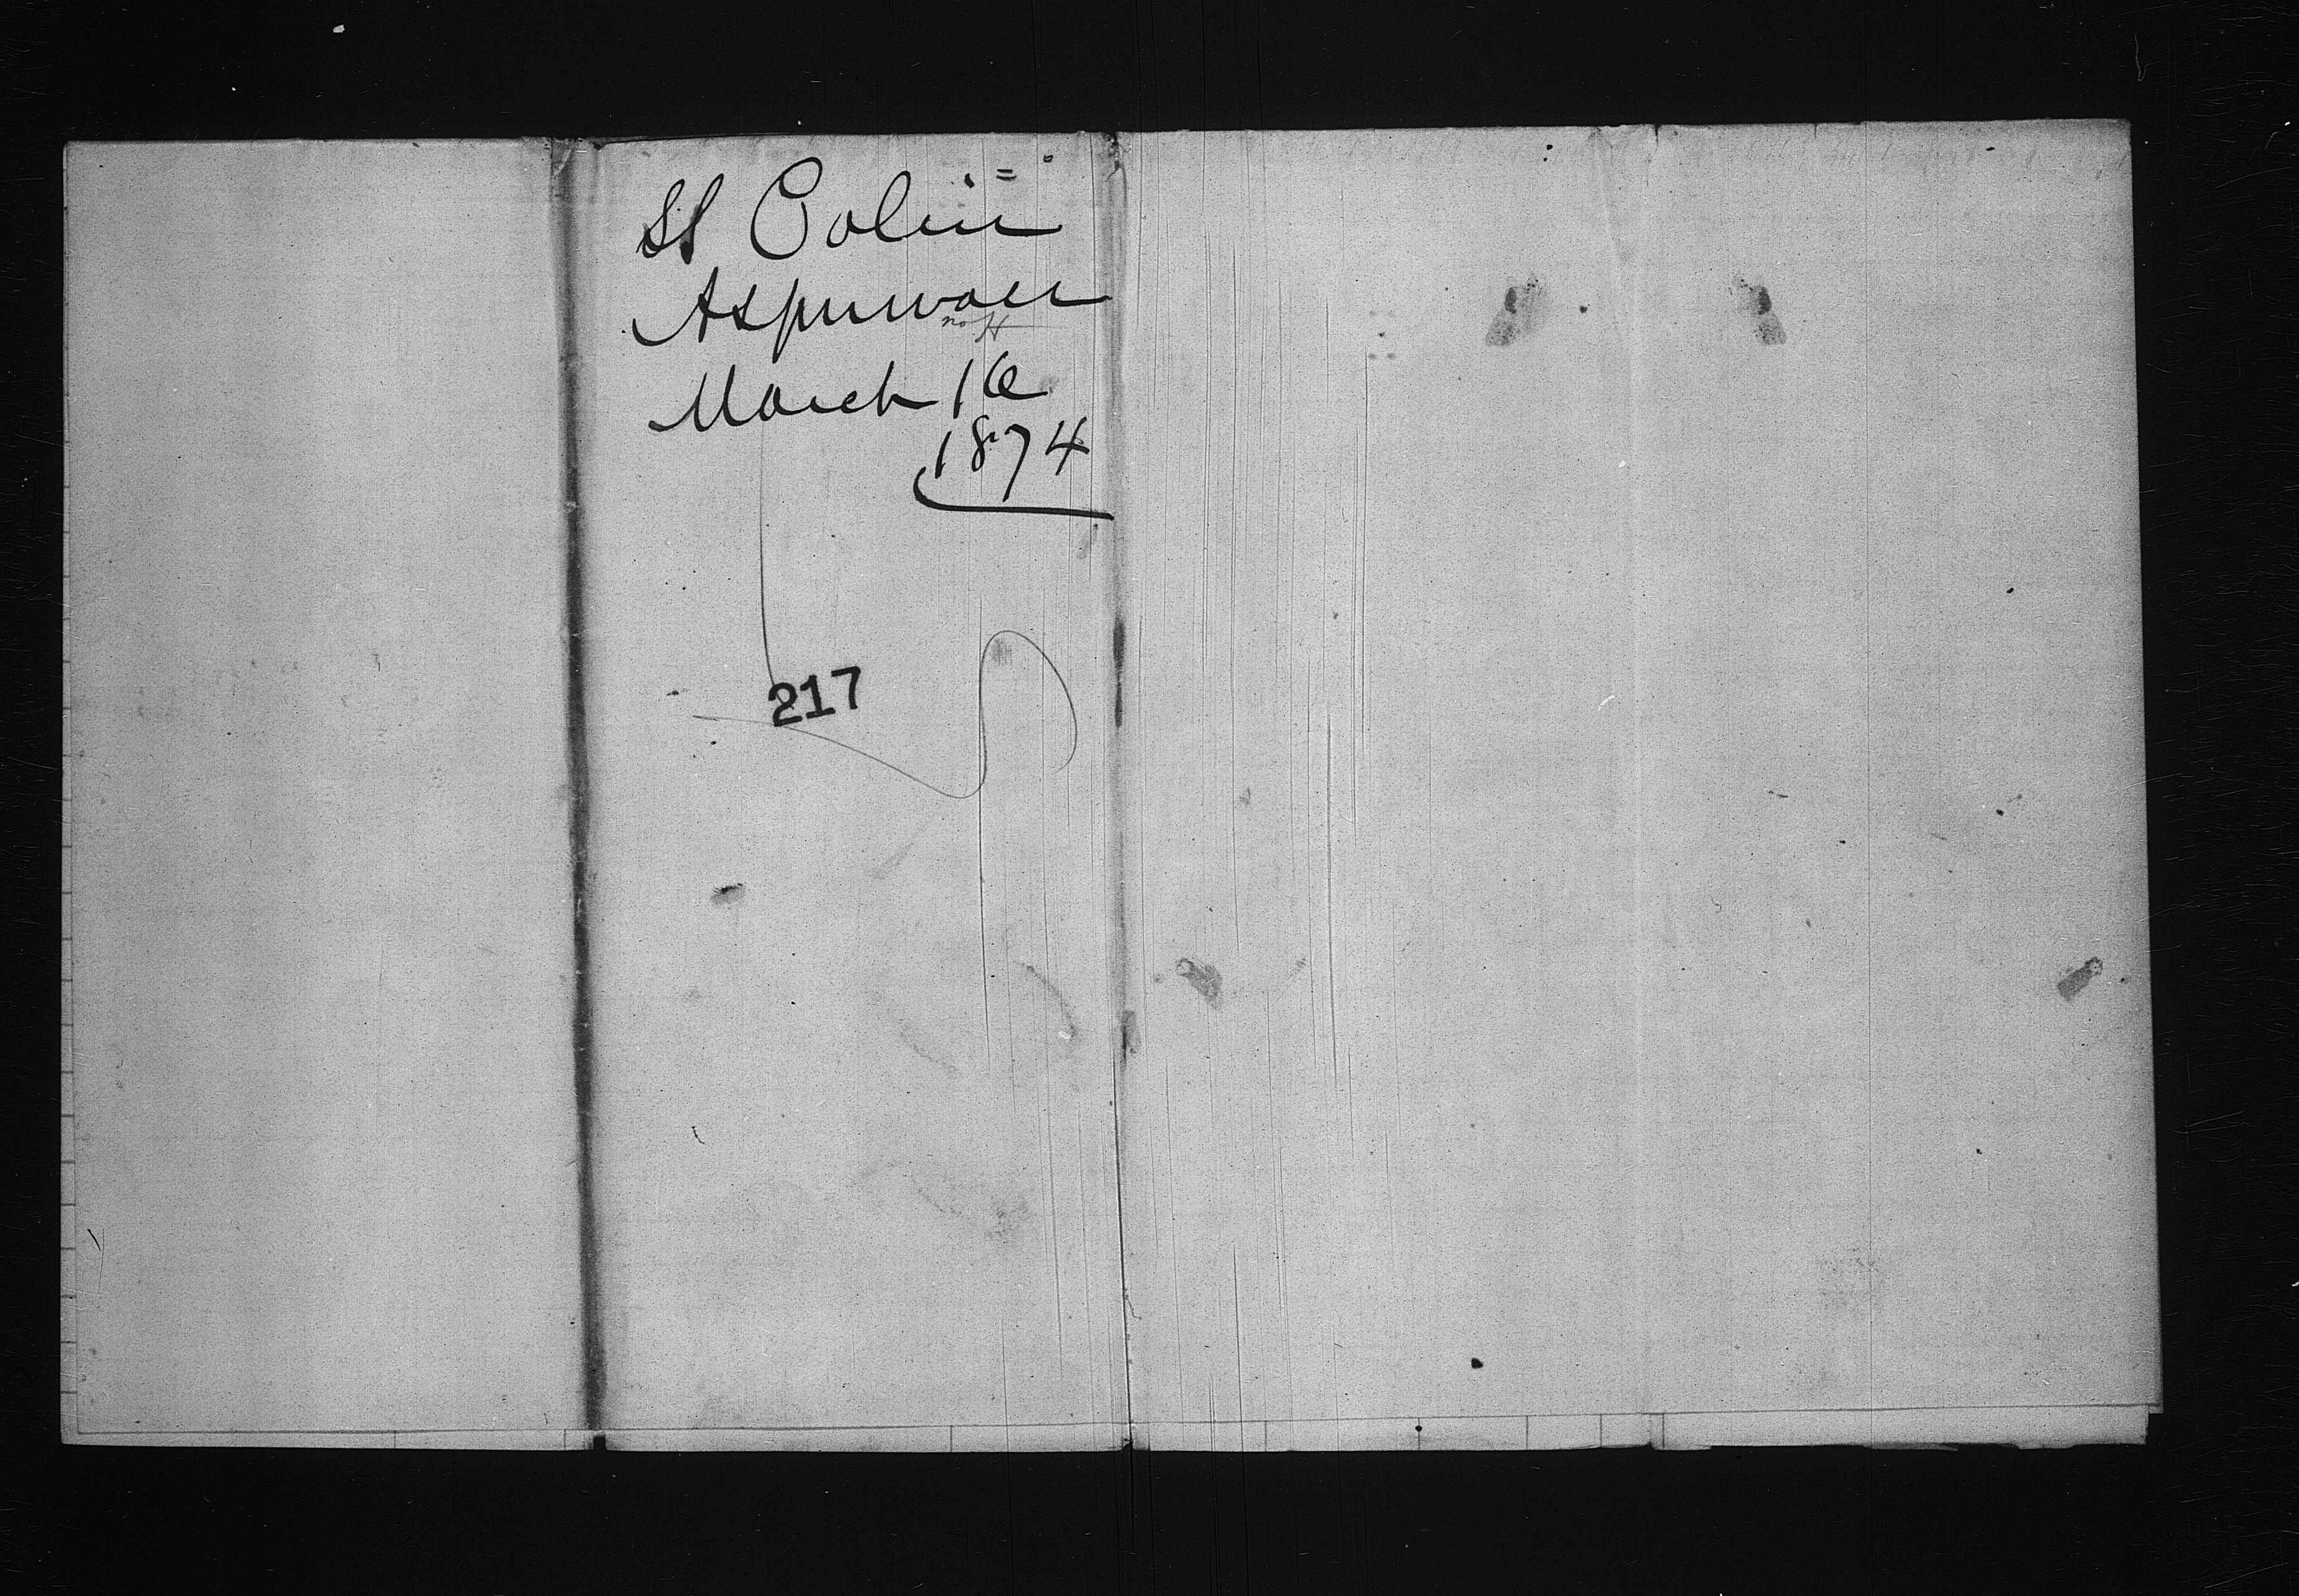 SS Colon
Aspinwall
March 16
1874
217